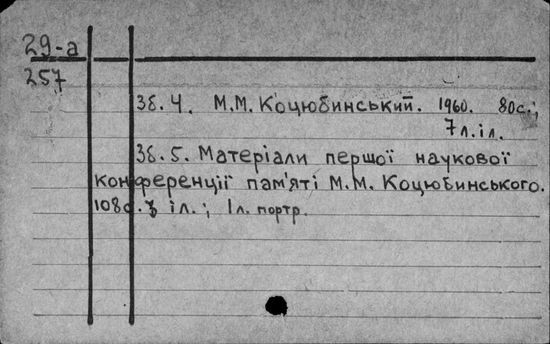 29-а
257
Зб. 4. М.М. Коцюбинський. 1960. 80с.;
7л.іл.
Зб. 5. Матеріали першої наукової
конференції пам'яті М.М. Коцюбинського.
108с. з іл.; 1л. портр.